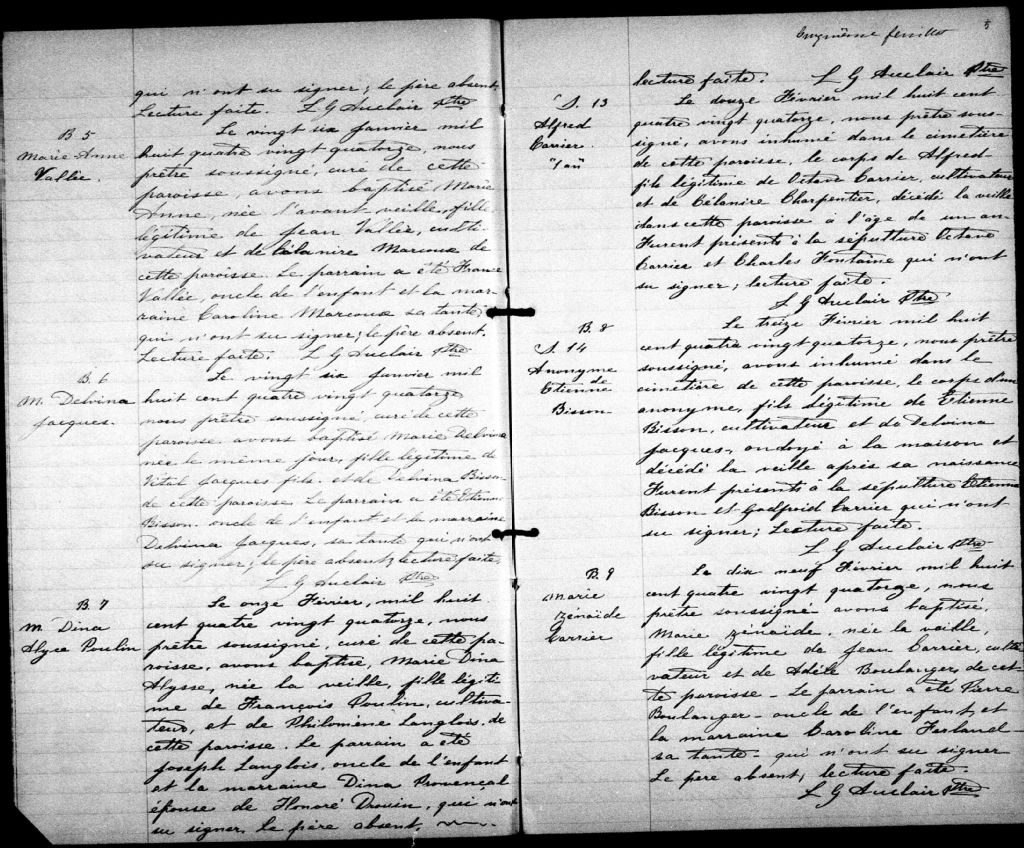 qui n'ont su signer; le père absent,
Lecture faite. L G Auclair Ptre
B 5
Marie-Anne
Vallée.
Le vingt six Janvier mil
huit quatre vingt quatorze, nous
prêtre soussigné, curé de cette
paroisse, avons baptisé Marie
Anne, née l'avant veille, fille
légitime de Jean Vallée, culti-
vateur et de Célanire Marcoux de
cette paroisse. Le parrain a été France
Vallée, oncle de l'enfant et la mar-
raine Caroline Marcoux sa tante
qui n'ont su signer; le père absent.
Lecture faite. L G Auclair Ptre
B. 6
M. Delvina
Jacques.
Le vingt six Janvier mil
huit cent quatre vingt quatorze
nous prêtre soussigné, curé de cette
paroisse avons baptisé Marie Delvina
née le même jour, fille légitime de
Vital Jacques fils et de Delvina Bisson
de cette paroisse. Le parrain a été Etienne
Bisson oncle de l'enfant et la marraine
Delvina Jacques, sa tante qui n'ont
su signer; le père absent, lecture faite,
L G Auclair Ptre
B. 7
M. Dina
Alyce Poulin
Le onze Février, mil huit
cent quatre vingt quatorze, nous
prêtre soussigné, curé de cette pa-
roisse, avons baptisé, Marie Dina
Alysse, née la veille, fille légiti-
me de François Poulin, cultiva-
teur, et de Philomène Langlois, de
cette paroisse. Le parrain a été
Joseph Langlois, oncle de l'enfant
et la marraine Dina Provençal
épouse de Honoré Drouin, qui n'ont
su signer, le père absent,
5
feuillet
lecture faite. L G Auclair Ptre
S. 13
Alfred
Carrier.
1 an
Le douze Février mil huit cent
quatre vingt quatorze, nous prêtre sous-
signé, avons inhumé dans le cimetière
de cette paroisse, le corps de Alfred-
fils légitime de Octave Carrier, cultivateur
et de Célanire Charpentier, décédé la veille
dans cette paroisse à l'âge de un an
Furent présents à la sépulture Octave
Carrier et Charles Fontaine qui n'ont
su signer; lecture faite.
L G Auclair Ptre
B. 8
S. 14
Anonyme
de
Etienne
Bisson
Le treize Février mil huit
cent quatre vingt quatorze, nous prêtre
soussigné, avons inhumé dans le
cimetière de cette paroisse, le corps d'un
anonyme, fils légitime de Etienne
Bisson, cultivateur et de Delvina
Jacques, ondoyé à la maison et
décédé la veille après sa naissance
Furent présents à la sépulture Etienne
Bisson et Godfroid Carrier qui n'ont
su signer; Lecture faite.
L G Auclair Ptre
B. 9
Marie
Zénaïde
Carrier
Le dix neuf Février mil huit
cent quatre vingt quatorze, nous
prêtre soussigné avons baptisé,
Marie Zénaïde, née la veille,
fille légitime de Jean Carrier, culti-
vateur et de Adèle Boulanger, de cet-
te paroisse - Le parrain a été Pierre
Boulanger - oncle de l'enfant, et
la marraine Caroline Ferland -
sa tante - qui n'ont su signer
Le père absent, lecture faite.
L G Auclair Ptre